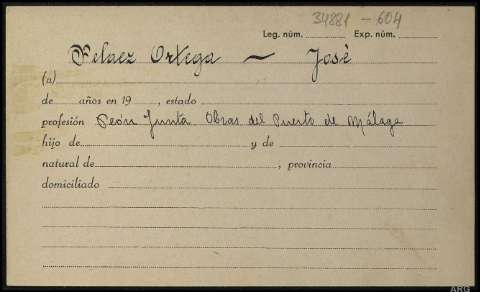 34881 - 604
Leg. núm. Exp. núm.
Pelaez Ortega — José
(a)
de años en 19 , estado
profesión Peón Junta Obras del Puerto de Málaga
hijo de y de
natural de , provincia
domiciliado
ARG